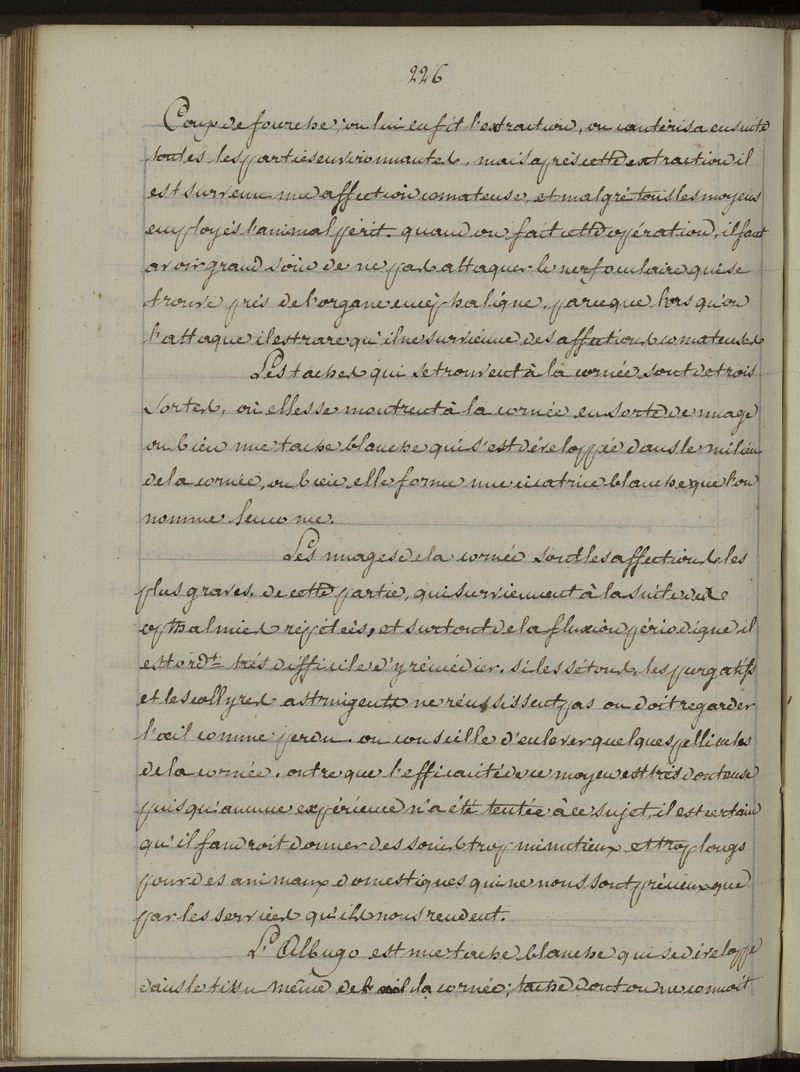 226
Coup de fourche; on lui en fit l'extraction, on cautérisa ensuite
toutes les parties environnantes. mais après cette extraction il
est survenu une affection comateuse, et malgré tous les moyens
employés l'animal périt. quand on fait cette opération, il faut
avoir grand soin de ne pas attaquer le nerf oculaire qui se
trouve près de l'organe encéphalique, parceque lors qu'on
l'attaque il est rare qu'il ne survienne des affections comateuses
Les taches qui se trouvent à la cornée sont de trois
Sortes, où elles se montrent à la cornée en sorte de nuage
ou bien une tache blanche qui s'est développée dans le milieu
de la cornée, ou bien elle forme une cicatrice blanche que l'on
nomme leucome.
Les nuages de la cornée sont les affections les
plus graves. de cette partie, qui surviennent à la suite des
opthalmies répétées, et surtout de la fluxion périodique il
est ordt. très difficile d'y rémédier. si les sétons, les purgatifs
et les collyres astringents ne réussissent pas on doit regarder
l'œil comme perdu. on conseille d'enlever quelques pellicules
de la cornée. outre que l'efficacité de ce moyen est très douteuse
puisqu'aucune expérience n'a été tentée à ce sujet, il est certain
qu'il faudroit donner des soins trop minutieux et trop longs
pour des animaux domestiques qui ne nous sont précieux que
par les services qu'ils nous rendent.
L'Albugo est une tache blanche qui se développe
dans le tissu même de la cornée; tache dont on ne connoit